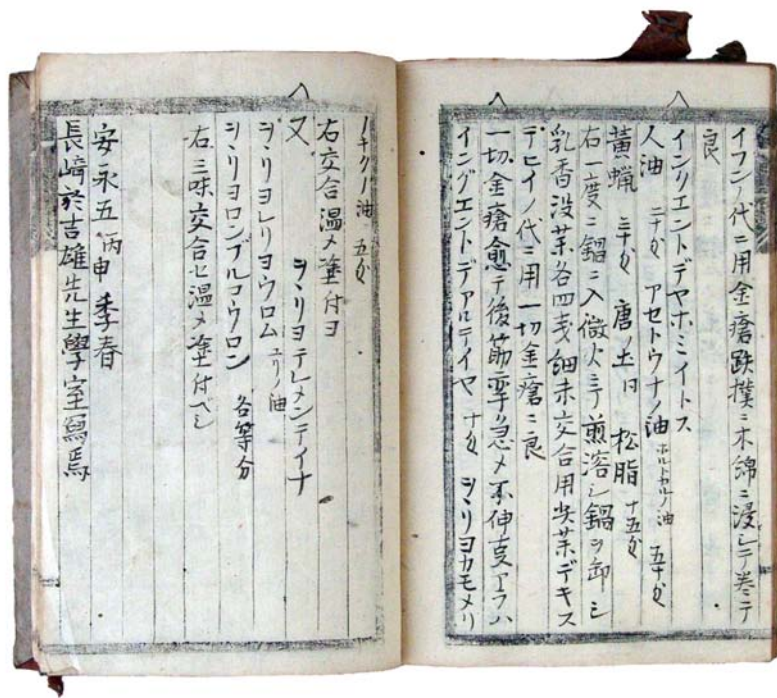 イフンノ代ニ用金瘡跌撲ニ木綿ニ浸シテ巻テ
良
インリエントデヤホミイトス
人油 二十匁 アセトウナノ油 ホルトカルノ油 五十匁
黄蝋 三十匁 唐ノ土 同 松脂 十五匁
右一度ニ鍋ニ入微火ニテ煎溶シ鍋ヲ卸シ
乳香没薬各四戔細末交合用失薬デキス
テヒイノ代ニ用一切金瘡ニ良
一切金瘡愈テ後筋攣リ急メ不伸支アラハ
イングエントデアルテイヤ 十匁 ヲヽリヨカモメリ
ノ油 五匁
右交合温メ塗付ヨ
又 ヲヽリヨテレメンテイナ
ヲヽリヨレリヨウロム ユリノ油
ヲヽリヨロンブルコウロン 各等分
右三味交合セ温メ塗付ベシ
安永五丙申季春
長崎於吉雄先生學室寫焉